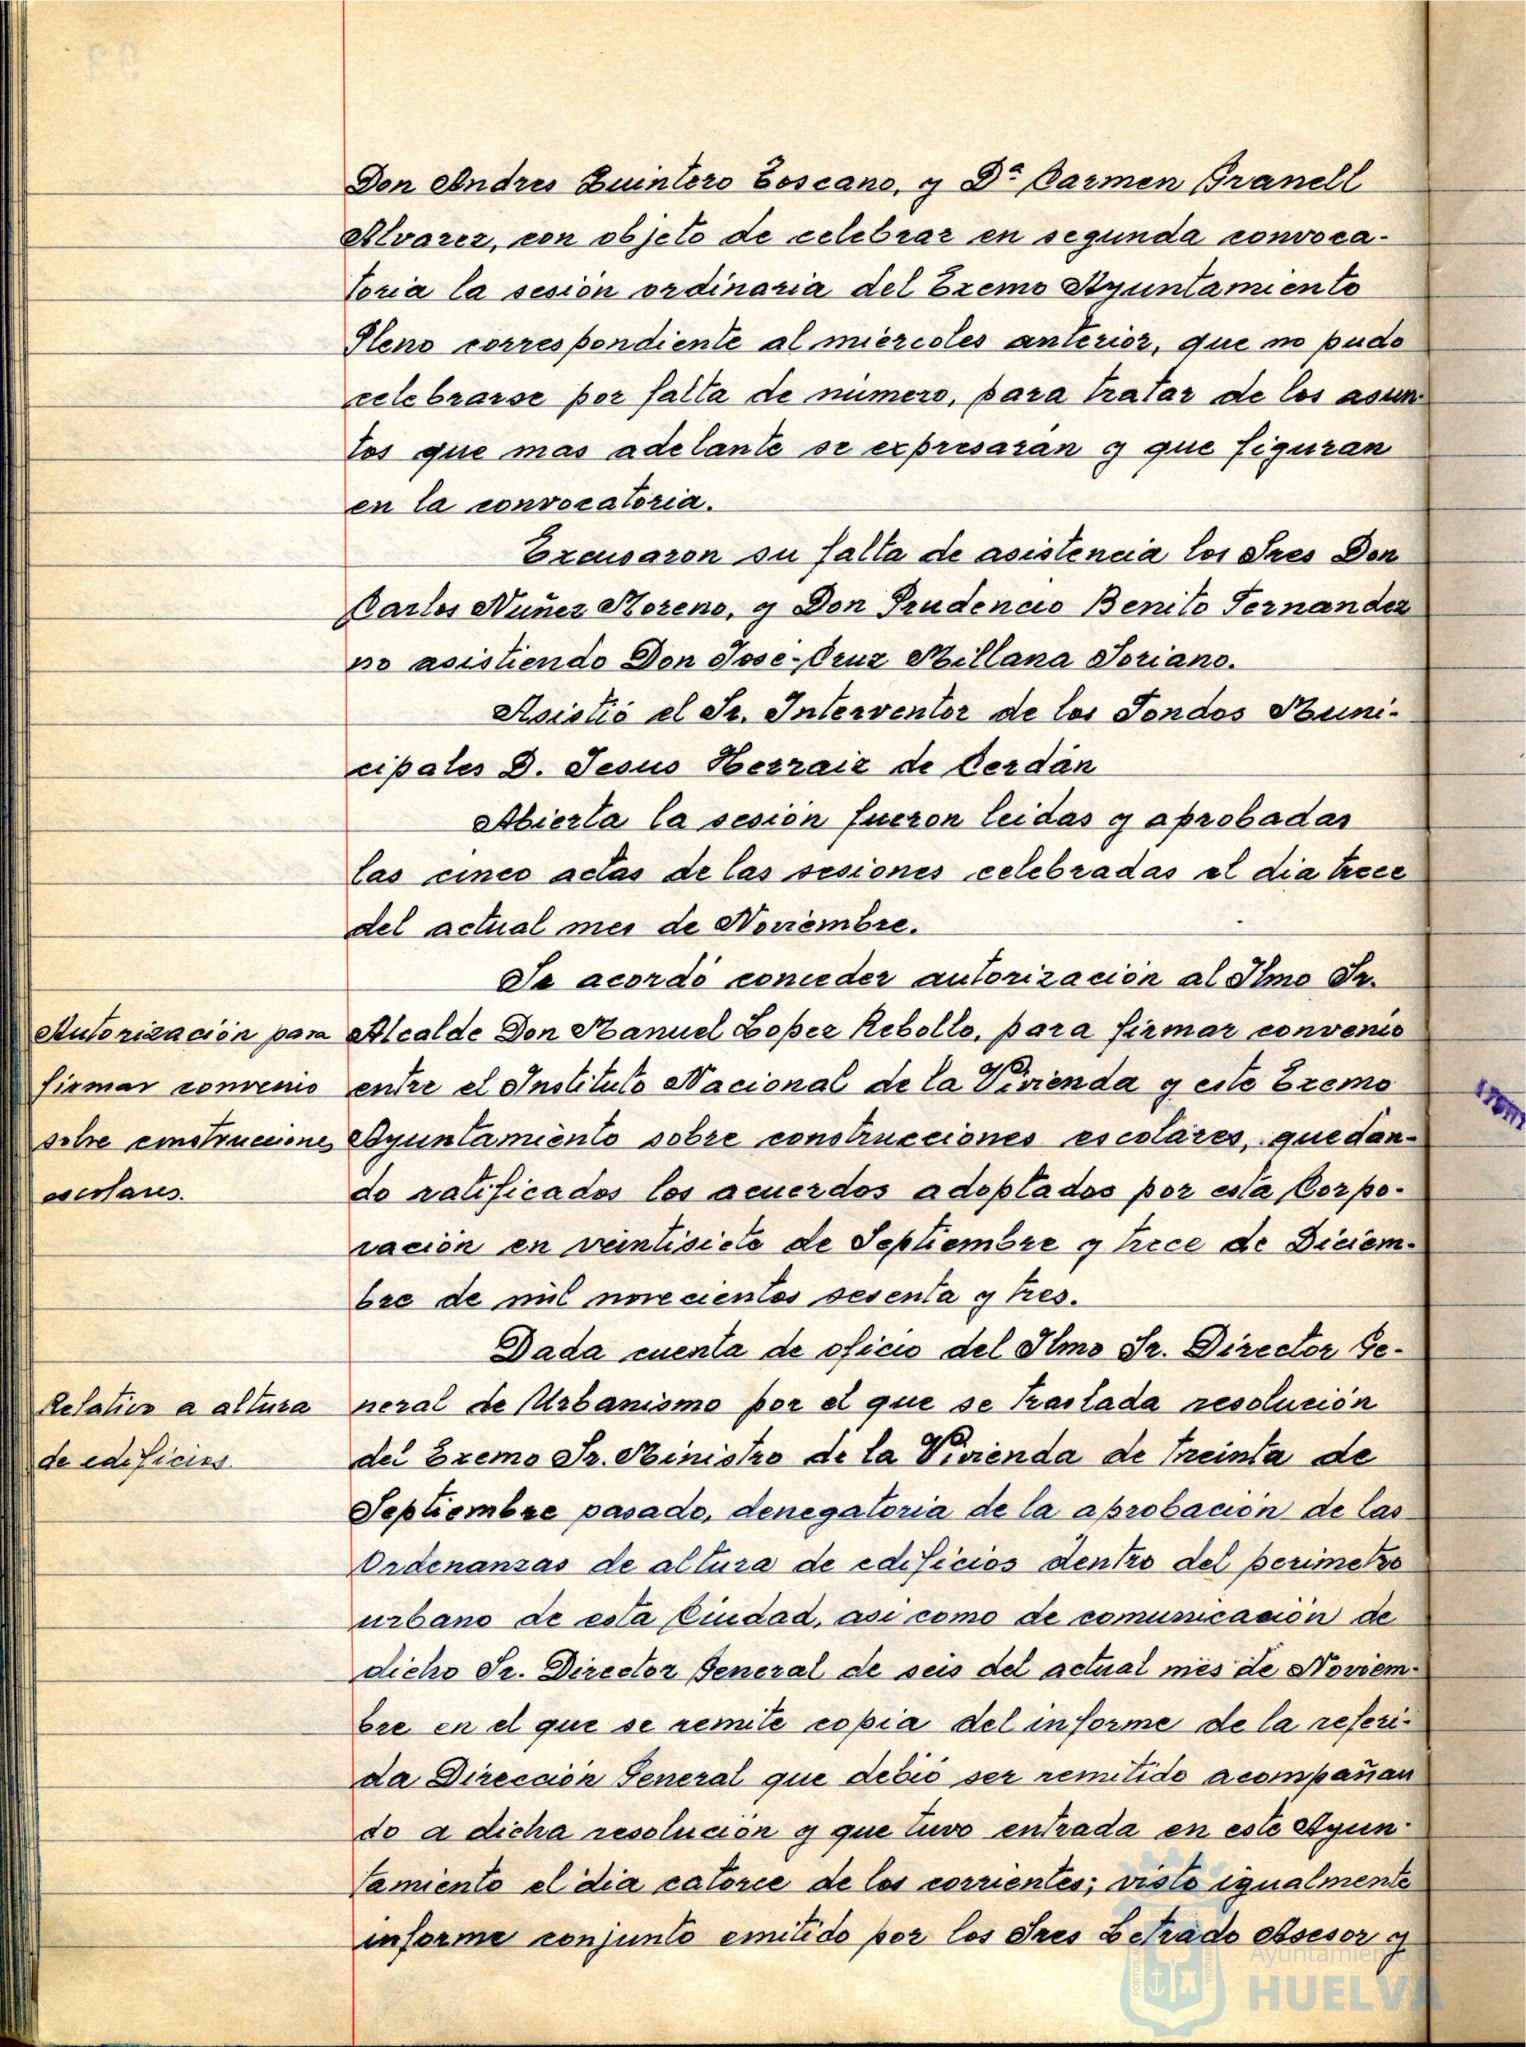 Don Andres Quintero Toscano, y Dª Carmen Granell
Alvarez, con objeto de celebrar en segunda convoca-
toria la sesión ordinaria del Excmo Ayuntamiento
Pleno correspondiente al miércoles anterior, que no pudo
celebrarse por falta de número, para tratar de los asun-
tos que mas adelante se expresarán y que figuran
en la convocatoria.
Excusaron su falta de asistencia los Sres Don
Carlos Nuñez Moreno, y Don Prudencio Benito Fernandez
no asistiendo Don José-Cruz Millana Soriano.
Asistió el Sr. Interventor de los Fondos Muni-
cipales D. Jesus Herraiz de Cerdán
Abierta la sesión fueron leidas y aprobadas
las cinco actas de las sesiones celebradas el dia trece
del actual mes de Noviembre.
Se acordó conceder autorización al Ilmo Sr.
Autorización para
firmar convenio
sobre construcciones
escolares.
Alcalde Don Manuel Lopez Rebollo, para firmar convenio
entre el Instituto Nacional de la Vivienda y este Excmo
Ayuntamiento sobre construcciones escolares, quedan-
do ratificados los acuerdos adoptados por esta Corpo-
ración en veintisiete de Septiembre y trece de Diciem-
bre de mil novecientos sesenta y tres.
Dada cuenta de oficio del Ilmo Sr. Director Ge-
Relativo a altura
de edificios.
neral de Urbanismo por el que se traslada resolución
del Excmo Sr. Ministro de la Vivienda de treinta de
Septiembre pasado, denegatoria de la aprobación de las
Ordenanzas de altura de edificios dentro del perimetro
urbano de esta Ciudad, asi como de comunicación de
dicho Sr. Director General de seis del actual mes de Noviem-
bre en el que se remite copia del informe de la referi-
da Dirección General que debió ser remitido acompañan
do a dicha resolución y que tuvo entrada en este Ayun-
tamiento el dia catorce de los corrientes; visto igualmente
informe conjunto emitido por los Sres Letrado Asesor y
Ayuntamiento de
HUELVA